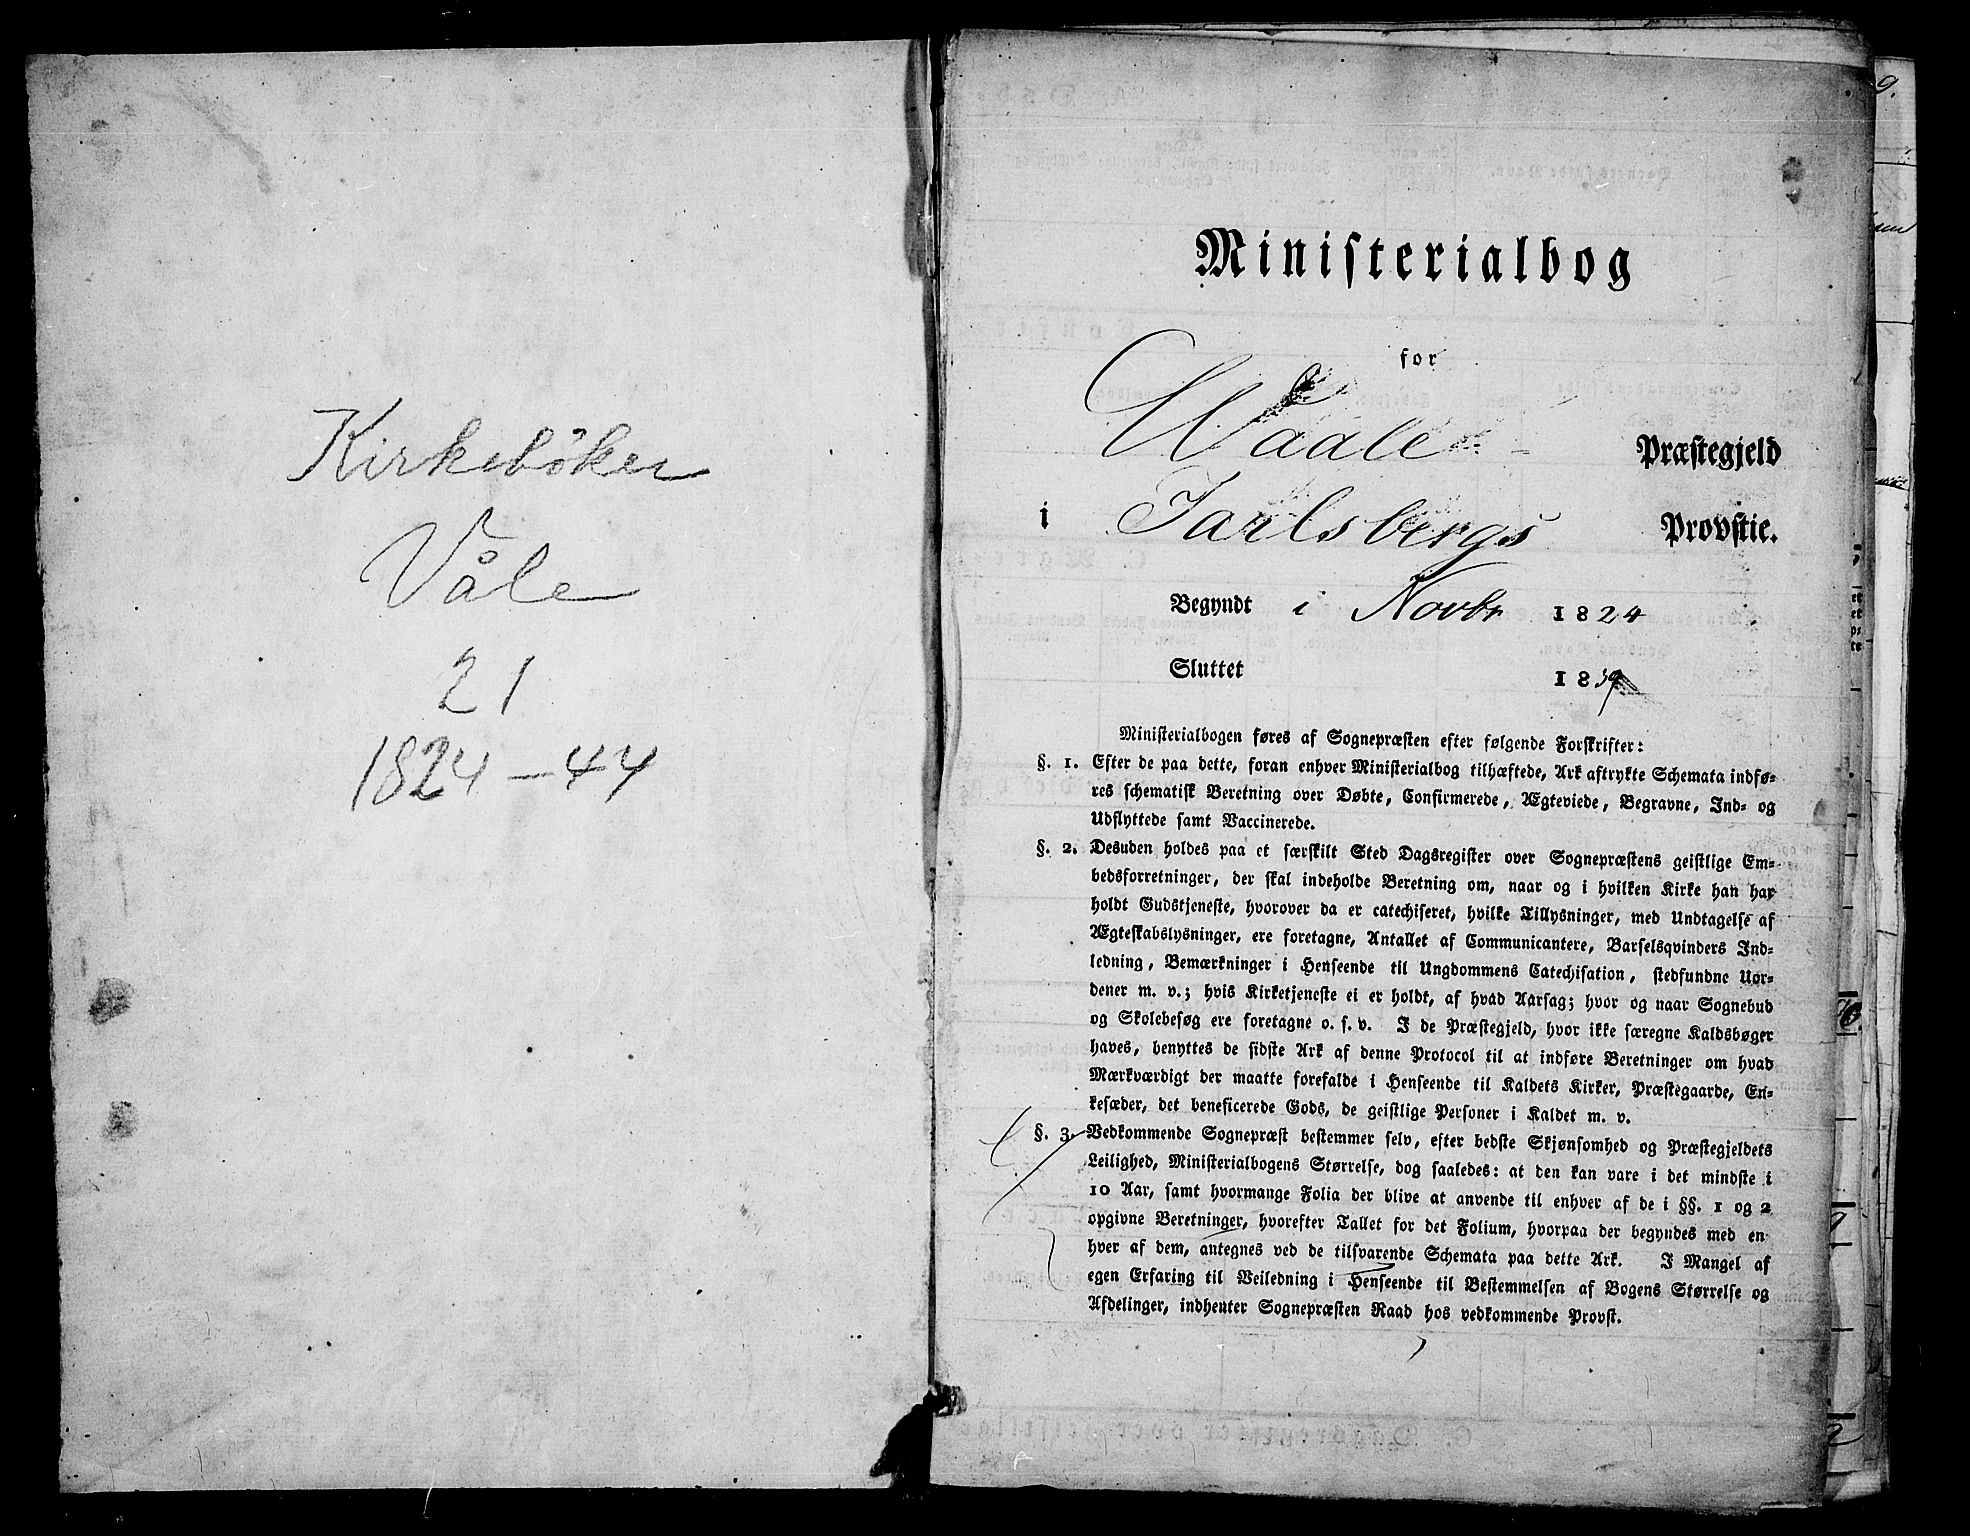 Kirkebøker
Våle
21
1824-44
Ministerialbog
for
Waale Præstegjeld
i Jarlsbergs Provstie.
Begyndt i Novbr 1824
Sluttet 1839
Ministerialbogen føres af Sognepræsten efter følgende Forskrifter:
§. 1. Efter de paa dette, foran enhver Ministerialbog tilhæftede, Ark aftrykte Schemata indfø-
res schematisk Beretning over Døbte, Confirmerede, Ægteviede, Begravne, Ind- og
Udflyttede samt Vaccinerede.
§. 2. Desuden holdes paa et særskilt Sted Dagsregister over Sognepræstens geistlige Em-
bedsforretninger, der skal indeholde Beretning om, naar og i hvilken Kirke han har
holdt Gudstjeneste, hvorover da er catechiseret, hvilke Tillysninger, med Undtagelse af
Ægteskabslysninger, ere foretagne, Antallet af Communicantere, Barselsqvinders Ind-
ledning, Bemærkninger i Henseende til Ungdommens Catechisation, stedfundne Uor-
dener m. v.; hvis Kirketjeneste ei er holdt, af hvad Aarsag; hvor og naar Sognebud
og Skolebesøg ere foretagne o. s. v. I de Præstegjeld, hvor ikke særegne Kaldsbøger
haves, benyttes de sidste Ark af denne Protocol til at indføre Beretninger om hvad
Mærkværdigt der maatte forefalde i Henseende til Kaldets Kirker, Præstegaarde, En-
kesæder, det beneficerede Gods, de geistlige Personer i Kaldet m. v.
§. 3. Vedkommende Sognepræst bestemmer selv, efter bedste Skjønsomhed og Præstegjeldets
Leilighed, Ministerialbogens Størrelse, dog saaledes: at den kan vare i det mindste i
10 Aar, samt hvormange Folia der blive at anvende til enhver af de i §§. 1 og 2
opgivne Beretninger, hvorefter Tallet for det Folium, hvorpaa der begyndes med en-
hver af dem, antegnes ved de tilsvarende Schemata paa dette Ark. I Mangel af
egen Erfaring til Veiledning i Henseende til Bestemmelsen af Bogens Størrelse og
Afdelinger, indhenter Sognepræsten Raad hos vedkommende Provst.